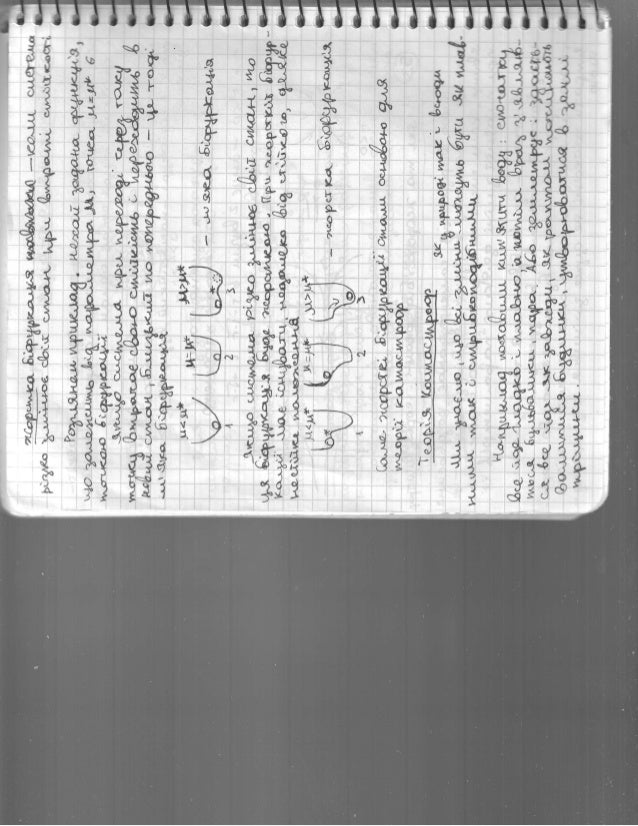 Жорстка біфуркація – коли система
різко змінює свій стан при втраті стійкості
Розглянем приклад. Нехай задана функція,
що залежить від параметра M, точка μ=μ* є
точкою біфуркації
Якщо система при переході через таку
точку втрачає свою стійкість і переходить в
новий стан, близький до попереднього – це тоді
м'яка біфуркація
μ<μ* μ=μ* μ>μ*
– м'яка біфуркація
1 2 3
Якщо система різко змінює свій стан, то
ця біфуркація буде жорсткою. При жорсткій біфур-
кації має існувати, недалеко від стійкого, деяке
нестійке положення
μ<μ* μ=μ* μ>μ*
– жорстка біфуркація
1 2 3
Саме жорсткі біфуркації стали основою для
теорії катастроф
Теорія Катастроф
як у природі так і всюди
Ми знаємо, що всі зміни можуть бути як плав-
ними так і стрибкоподібними
Наприклад поставили кип'ятити воду: спочатку
все йде гладко і плавно, а потім враз з'явля-
ться бульбашки пара. Або землетрус:
ся все так як завжди, як раптом починають
валитися будинки, утворюватися в землі
тріщини.